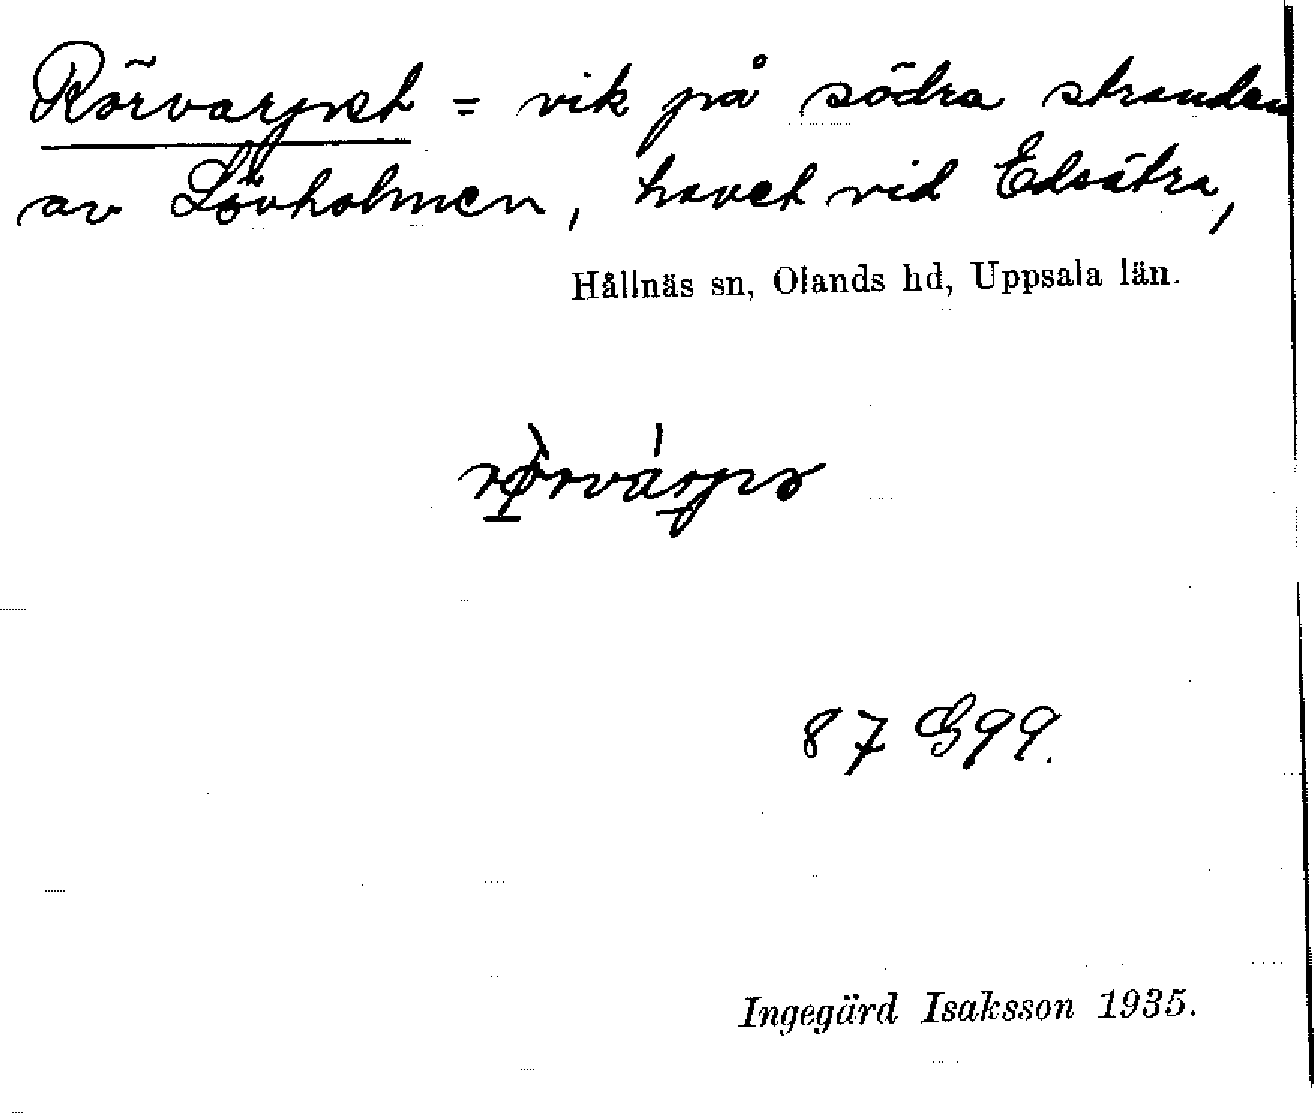 Rörvarpet = vik på södra stranden
av Lövholmen, havet vid Edsätra,
Hållnäs sn, Olands hd, Uppsala län.
87 G99.
Ingegärd Isaksson 1935.